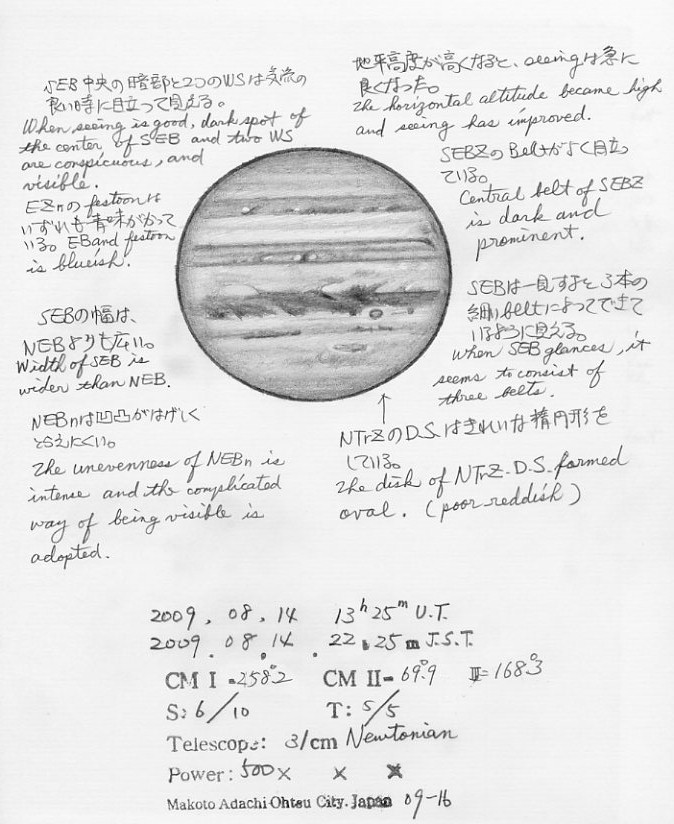 SEB中央の暗部と2つのWSは気流の
良い時に目立って見える。
When seeing is good, dark spot of
the center of SEB and two WS
are conspicuous, and
visible.
EZnのfestoonは
いずれも青味がかって
いる。EB and festoon
is blueish.
SEBの幅は、
NEBよりも広い。
Width of SEB is
wider than NEB.
NEBnは凹凸がはげしく
とらえにくい。
The unevenness of NEBn is
intense and the complicated
way of being visible is
adopted.
地平高度が高くなると、seeingは急に
良くなった。
The horizontal altitude became high
and seeing has improved.
SEBZのBeltがよく目立っ
ている。
Central belt of SEBZ
is dark and
prominent.
SEBは一見すると3本の
細いbeltによってできて
いるように見える。
When SEB glances, it
seems to consist of
three belts.
NTrZのD.S.はきれいな楕円形を
している。
The disk of NTrZ-D.S. formed
oval. (poor reddish)
2009. 08. 14 13h 25m U.T.
2009. 08. 14. 22h 25m J.S.T.
CM I = 258.°2 CM II = 69.°9 III = 168.°3
S: 6/10 T: 5/5
Telescope: 31cm Newtonian
Power: 500× × ×
Makoto Adachi Ohtsu City. Japan 09-16